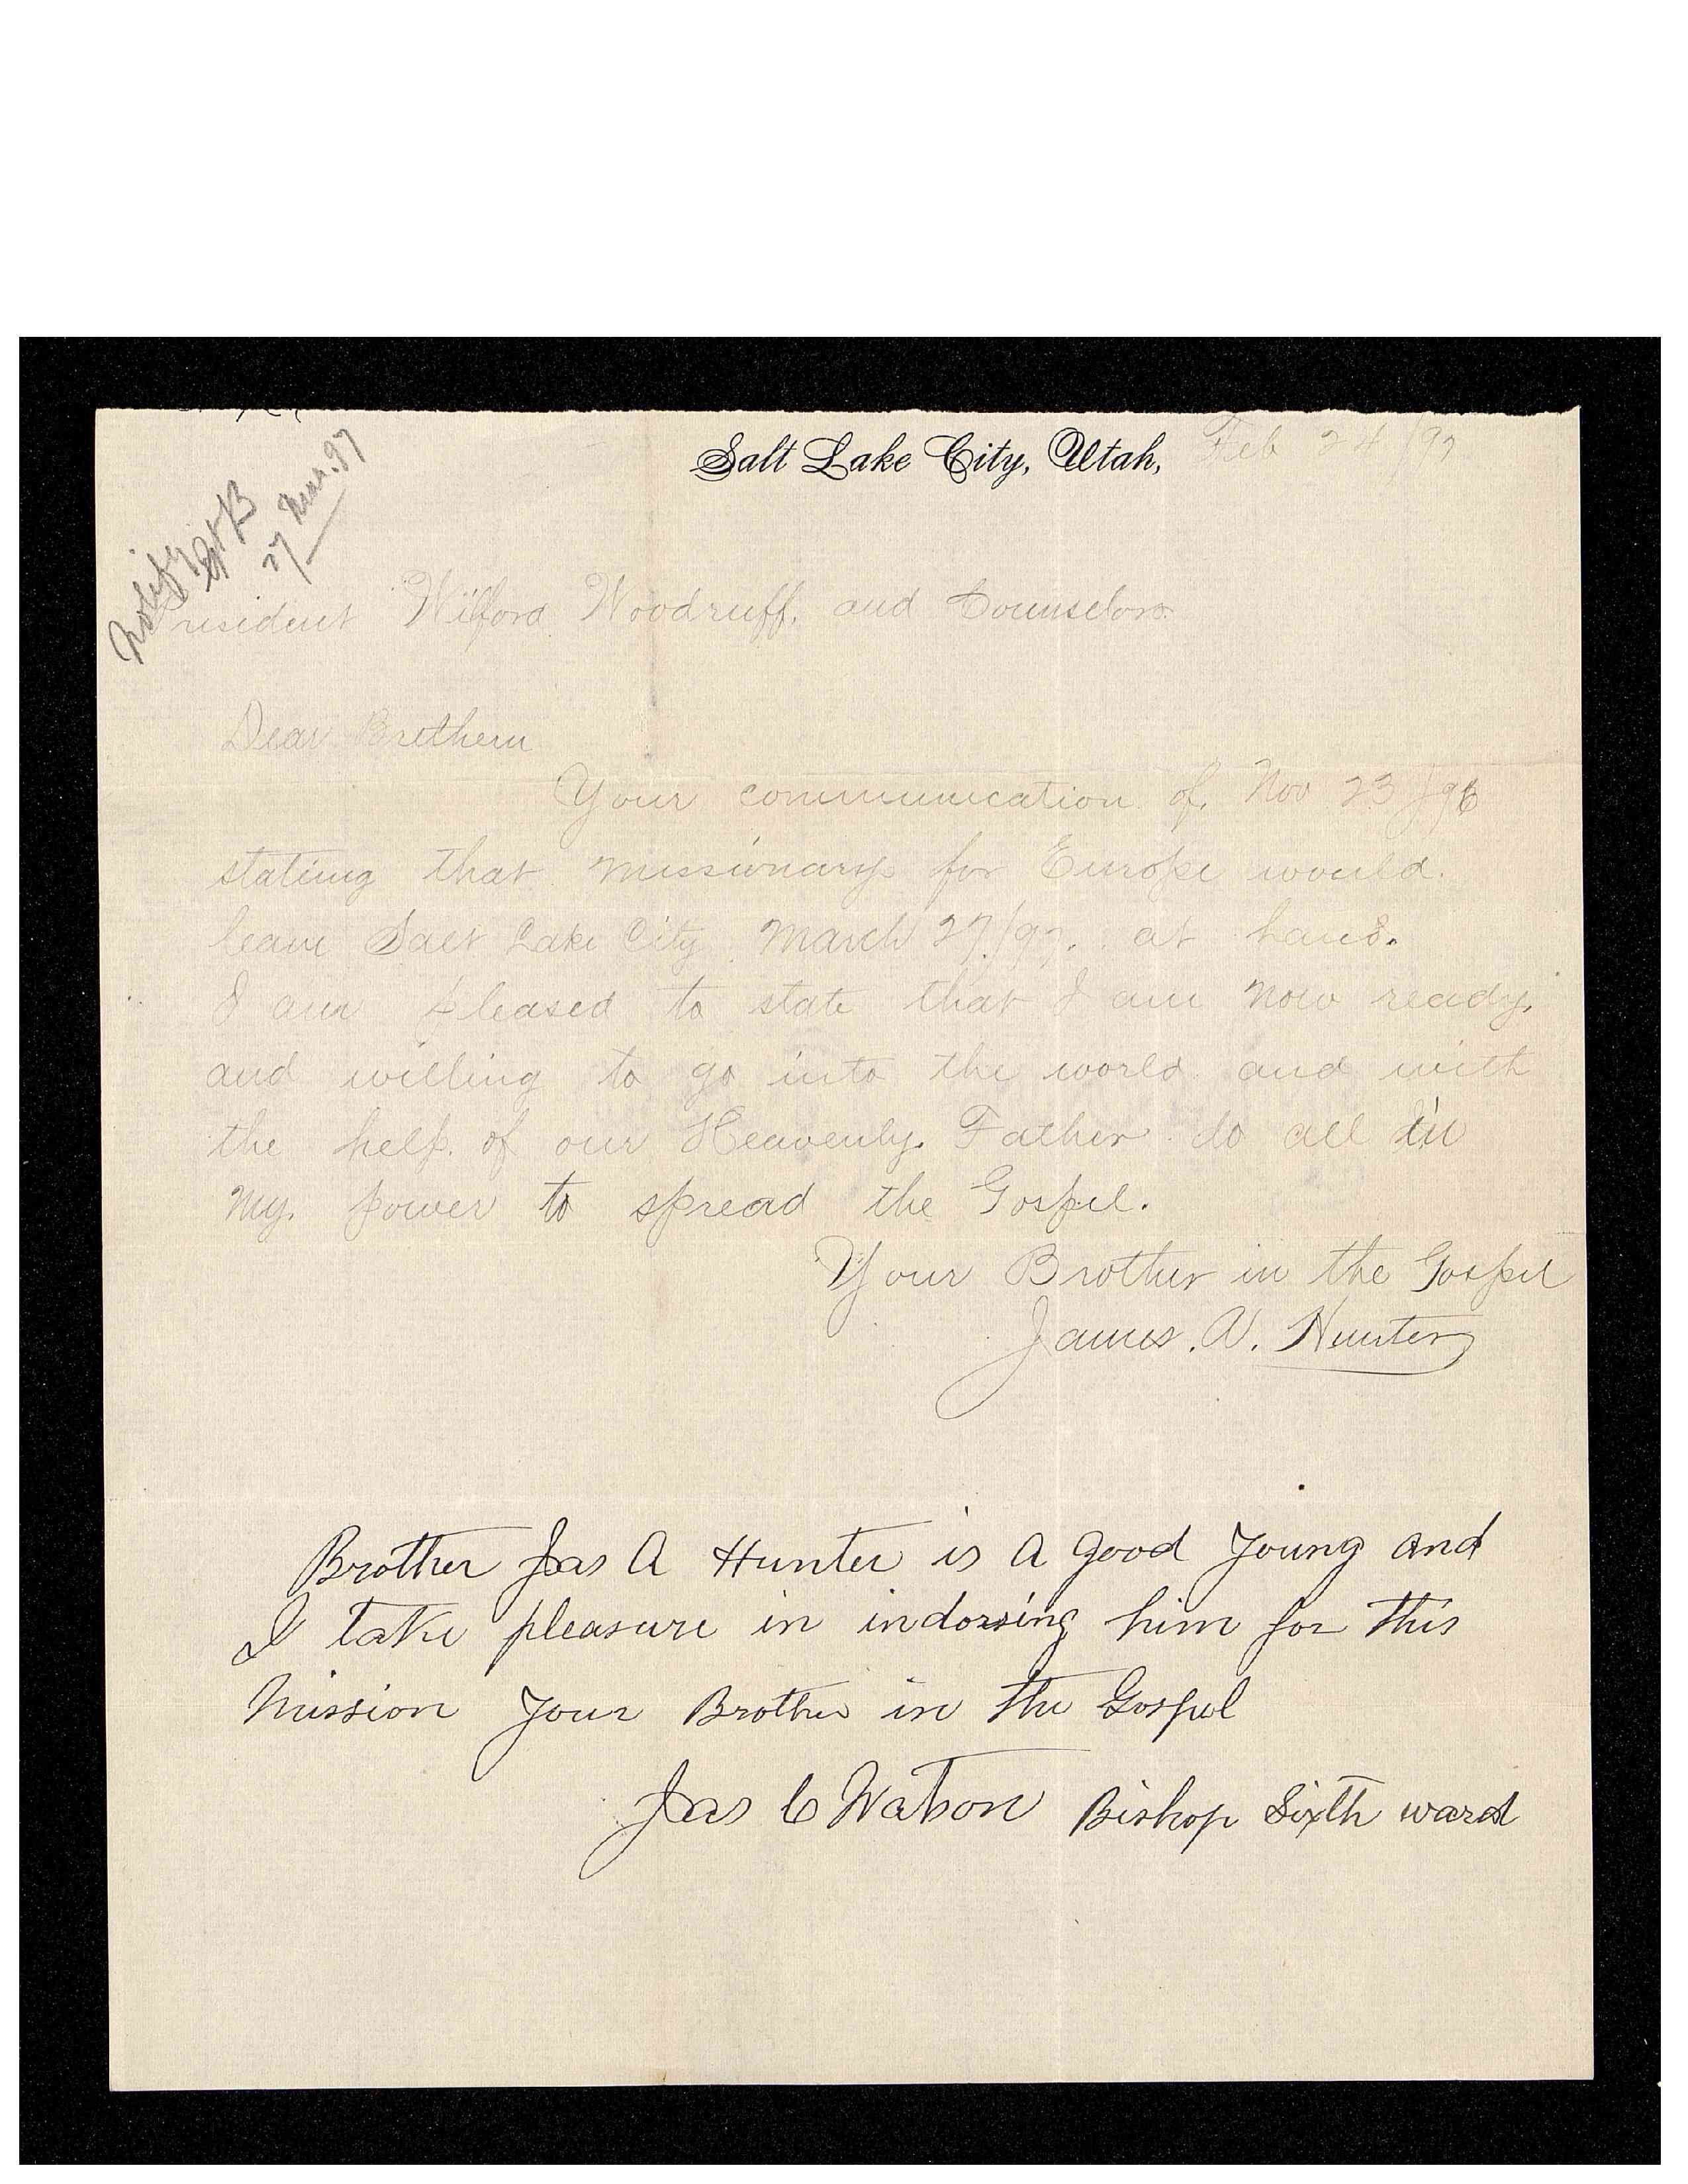 Salt Lake City, Utah, Feb 24/97
Notify
Gt B
27 Mar. 97
President Wilford Woodruff, and Counselors.
Dear Brethern
Your communication of, Nov 23/96
stating that missionarys for Europe would.
leave Salt Lake City. March 27/97. at hand.
I am pleased to state that I am now ready,
and willing to go into the world and with
the help. of our Heavenly. Father do all in
my. power to spread the Gospel.
Your Brother in the Gospel
James. A. Hunter
Brother Jas A Hunter is a good Young and
I take pleasure in indorsing him for this
Mission Your Brother in the Gospel
Jas C Watson Bishop Sixth ward